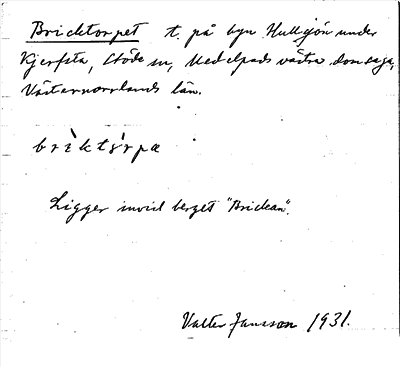 Bricktorpet t. på byn Hullsjön under
Kjerfsta, Stöde sn, Medelpads västra domsaga,
Västernorrlands län.
brìktórpæ
Ligger invid berget "Brickan".
Valter Jansson 1931.